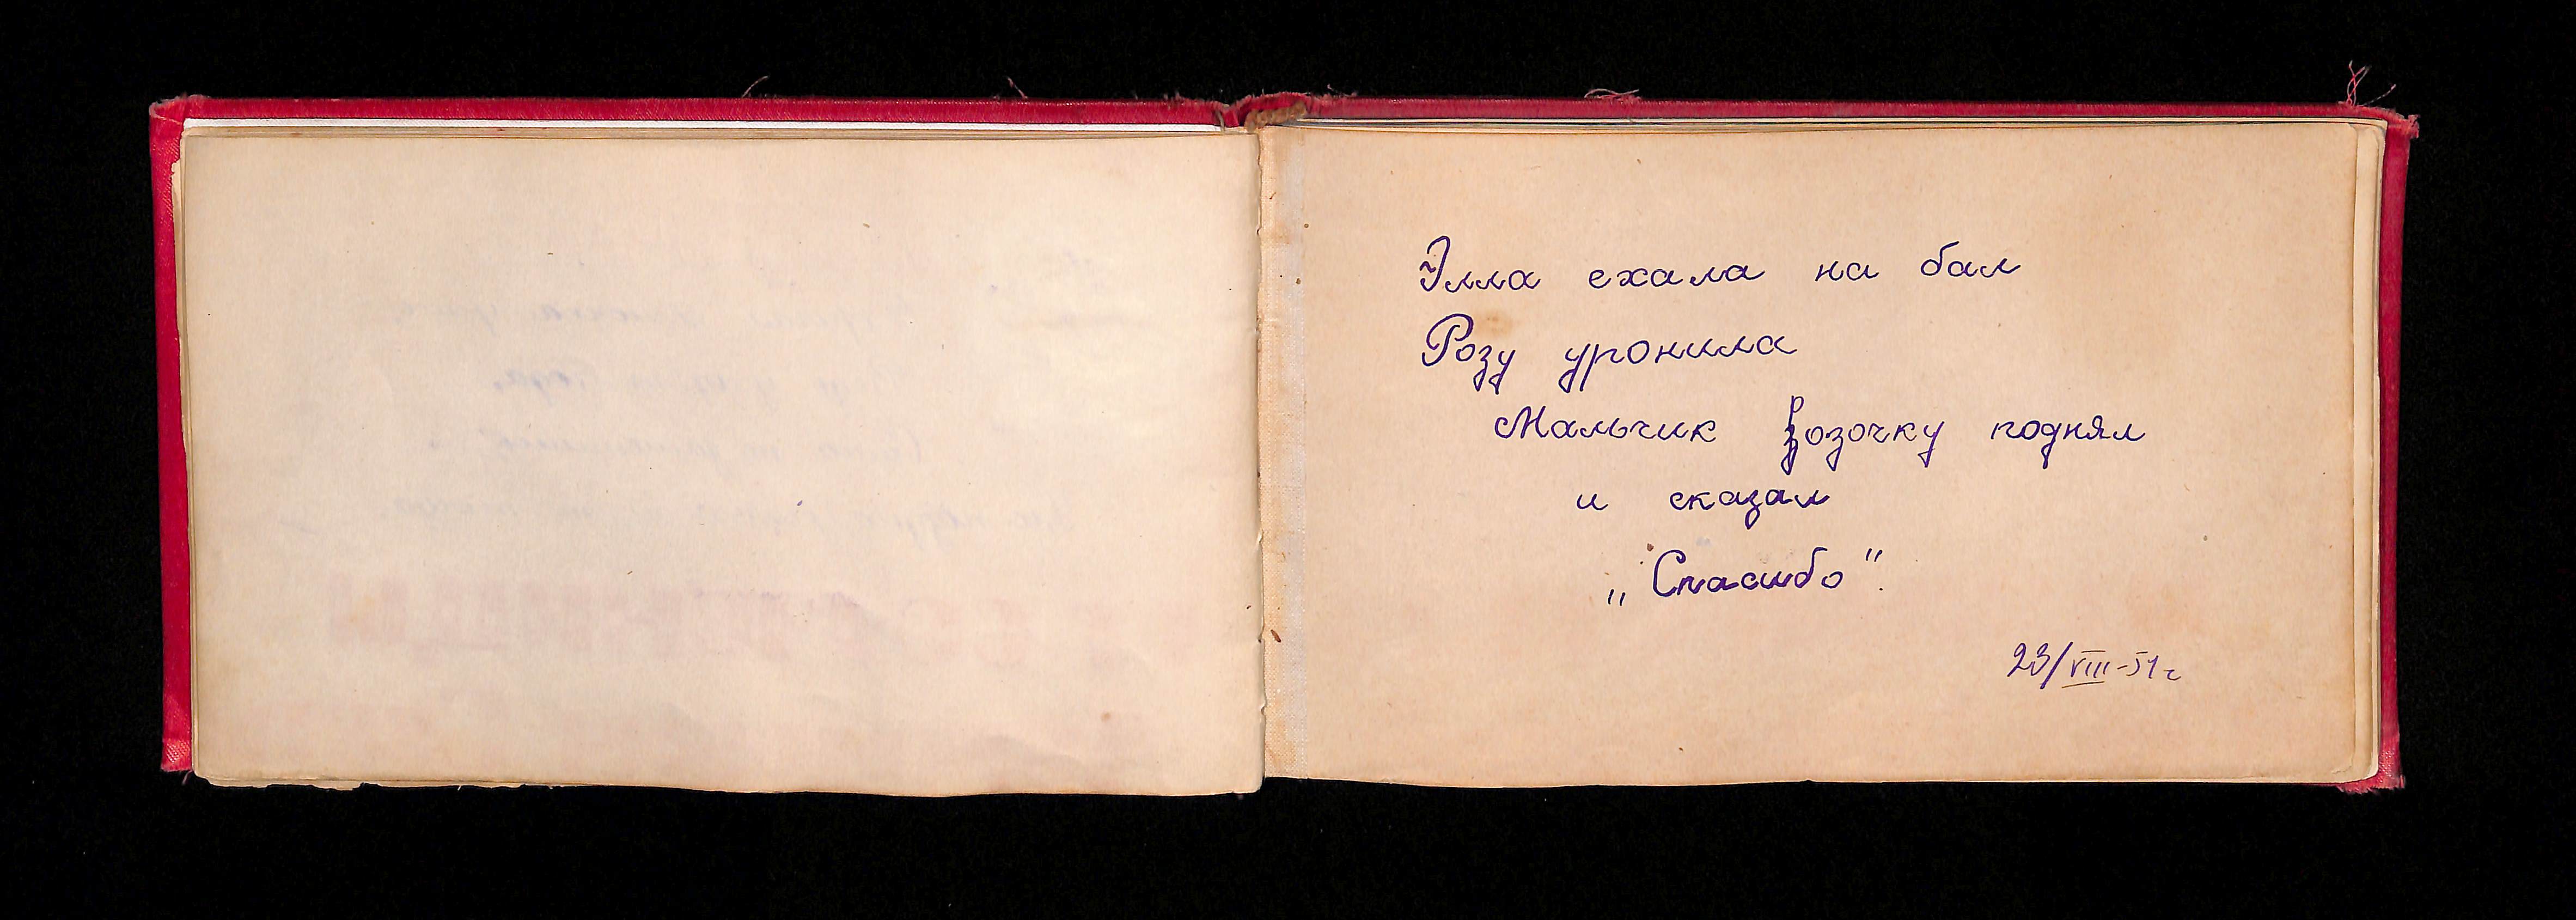 Элла ехала на бал
Розу уронила
Мальчик розочку поднял
и сказал
„Спасибо".
23/VIII-51г